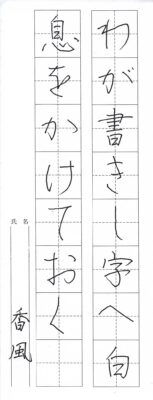 わが書きし字へ白
息をかけておく
氏名
香風